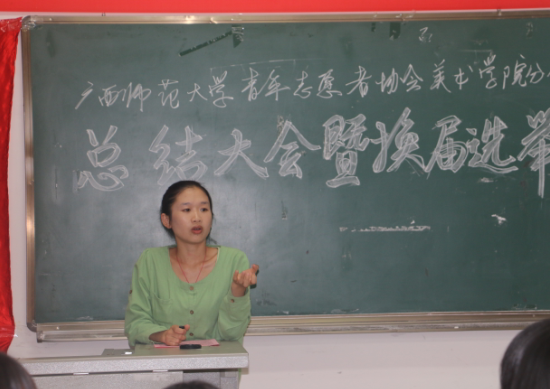 广西师范大学青年志愿者协会美术学院分
总结大会暨换届选举